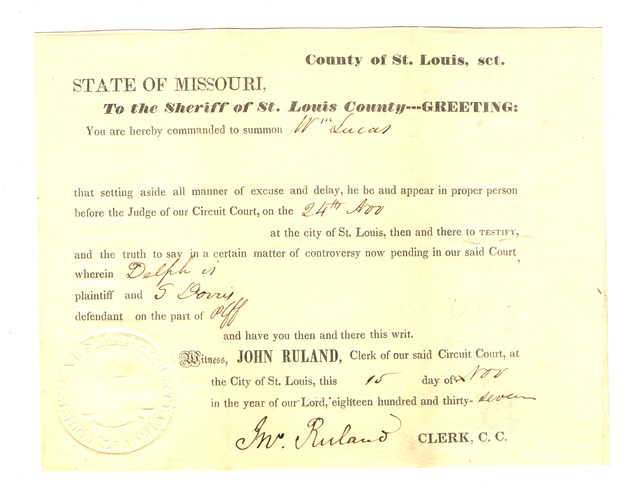 County of St. Louis, sct.
STATE OF MISSOURI,
To the Sheriff of St. Louis County---GREETING:
You are hereby commanded to summon Wm Lucas
that setting aside all manner of excuse and delay, he be and appear in proper person
before the Judge of our Circuit Court, on the 24th Nov
at the city of St. Louis, then and there to TESTIFY,
and the truth to say in a certain matter of controversy now pending in our said Court
wherein Delph is
plaintiff and S Dorris
defendant on the part of Plff
and have you then and there this writ.
Witness, JOHN RULAND, Clerk of our said Circuit Court, at
the City of St. Louis, this 15 day of Nov
in the year of our Lord, eighteen hundred and thirty-seven
Jno. Ruland CLERK, C. C.